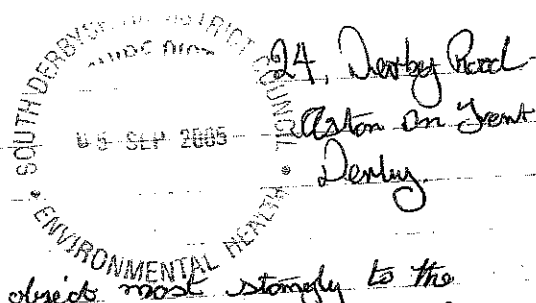 SOUTH DERBYSHIRE DISTRICT COUNCIL
05 SEP 2005
ENVIRONMENTAL HEALTH
24, Derby Road
Aston on Trent
Derby.
object most stongly to the